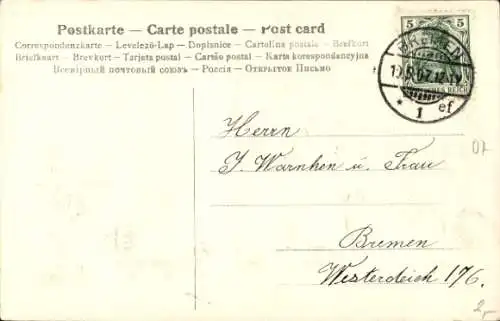 Postkarte — Carte postale — Post card
Correspondenzkarte – Levelező-Lap – Dopisnice – Cartolina postale – Brefkort
Briefkaart – Brevkort – Tarjeta postal – Cartão postal – Karta korespondencyjna
Всемірный почтовый союзъ – Россія – Открытое Письмо
5 5
BREMEN
* 1 ef
Herrn
J. Warnken u. Frau
Bremen
Westerdeich 176.
07
2,-